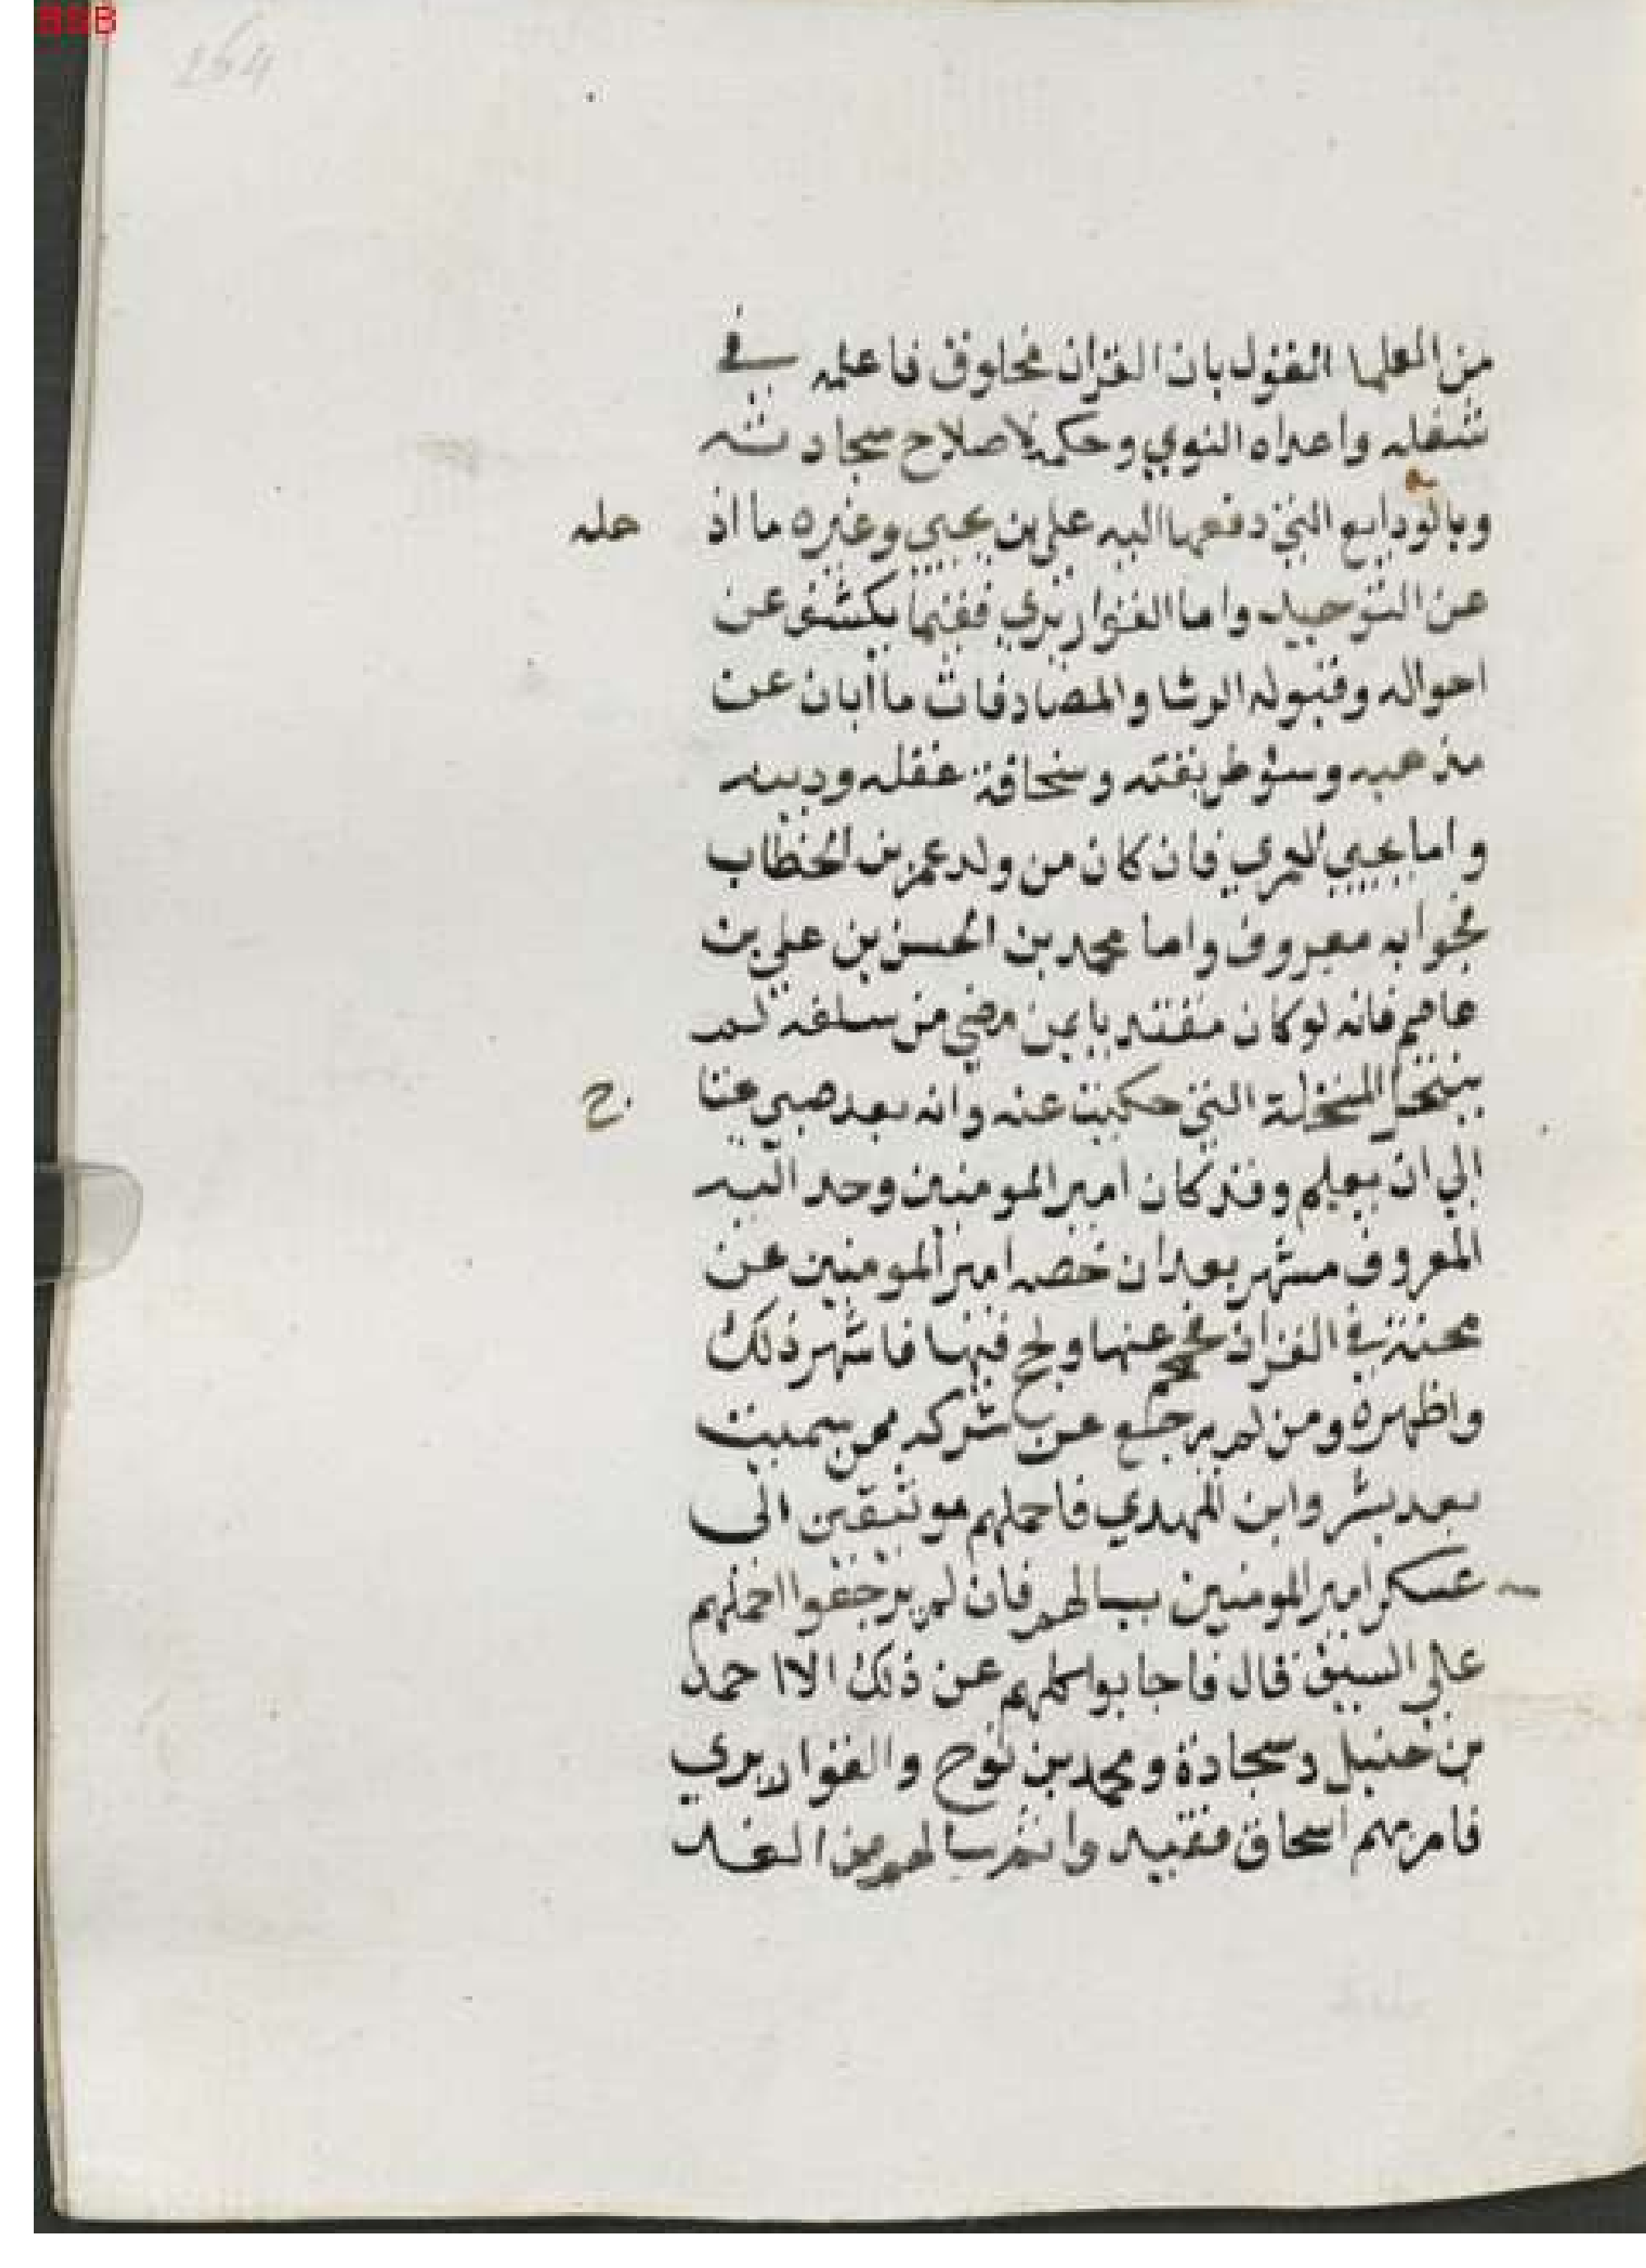 264
من العلما القول بان القران مخلوق فاعلمه في
شغله واعداه النوي وحكمه لاصلاح سجادته
وبالودايع التي دفعها اليه علي بن يحيي وغيره ما اذ حله
عن التوحيد واما القواريري ففيما يكشف عن
احواله وقبوله الرشا والمصادفات ما أبان عن
مذهبه وسؤ طريقته وسخافة عقله ودينه
واما يحيي العمري فان كان من ولد عمر بن الخطاب
فجوابه معروف واما محمد بن الحسن بن علي بن
عاصم فانه لو كان مقتديا بمن مضي من سلفه لم
ينتحل المنحلة التي حكيت عنه وانه بعد صبي عنا ح
الي ان يعلم وقد كان امير المومنين وحد اليه
المعروف مشهر بعد ان خصه امير المومنين عن
محنته في القران عنها ولح فيها فاشهر ذلك
واظهره ومن لم يرجع عن شركه ممن سميت
بعد بشر وابن المهدي فاحملهم موثقين الى
عسكر امير المومنين يسالهم فان لم يرجعوا احملهم
علي السيف قال فاجابوا كلهم عن ذلك الا احمد
بن حنبل وسجادة ومحمد بن نوح والقواريري
فامر بهم اسحاق فقيد وا ثم سالهم من الغد